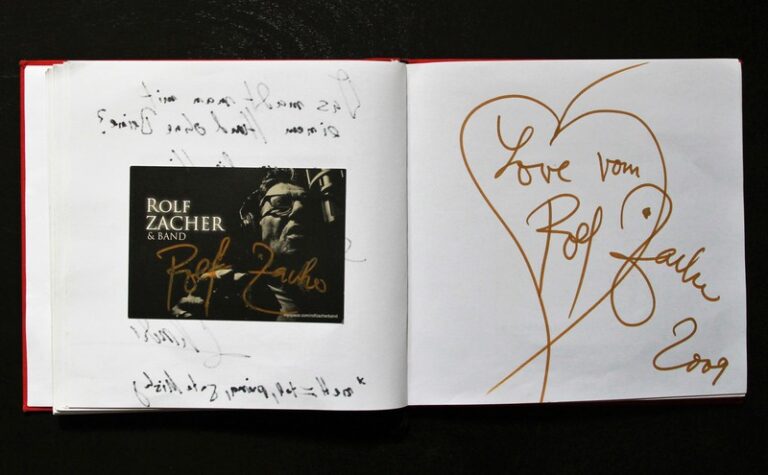 Was macht man mit
einem Hund ohne Beine?
ROLF
ZACHER
& BAND
Rolf Zacher
myspace.com/rolfzacherband
Love vom
Rolf Zacher
2009